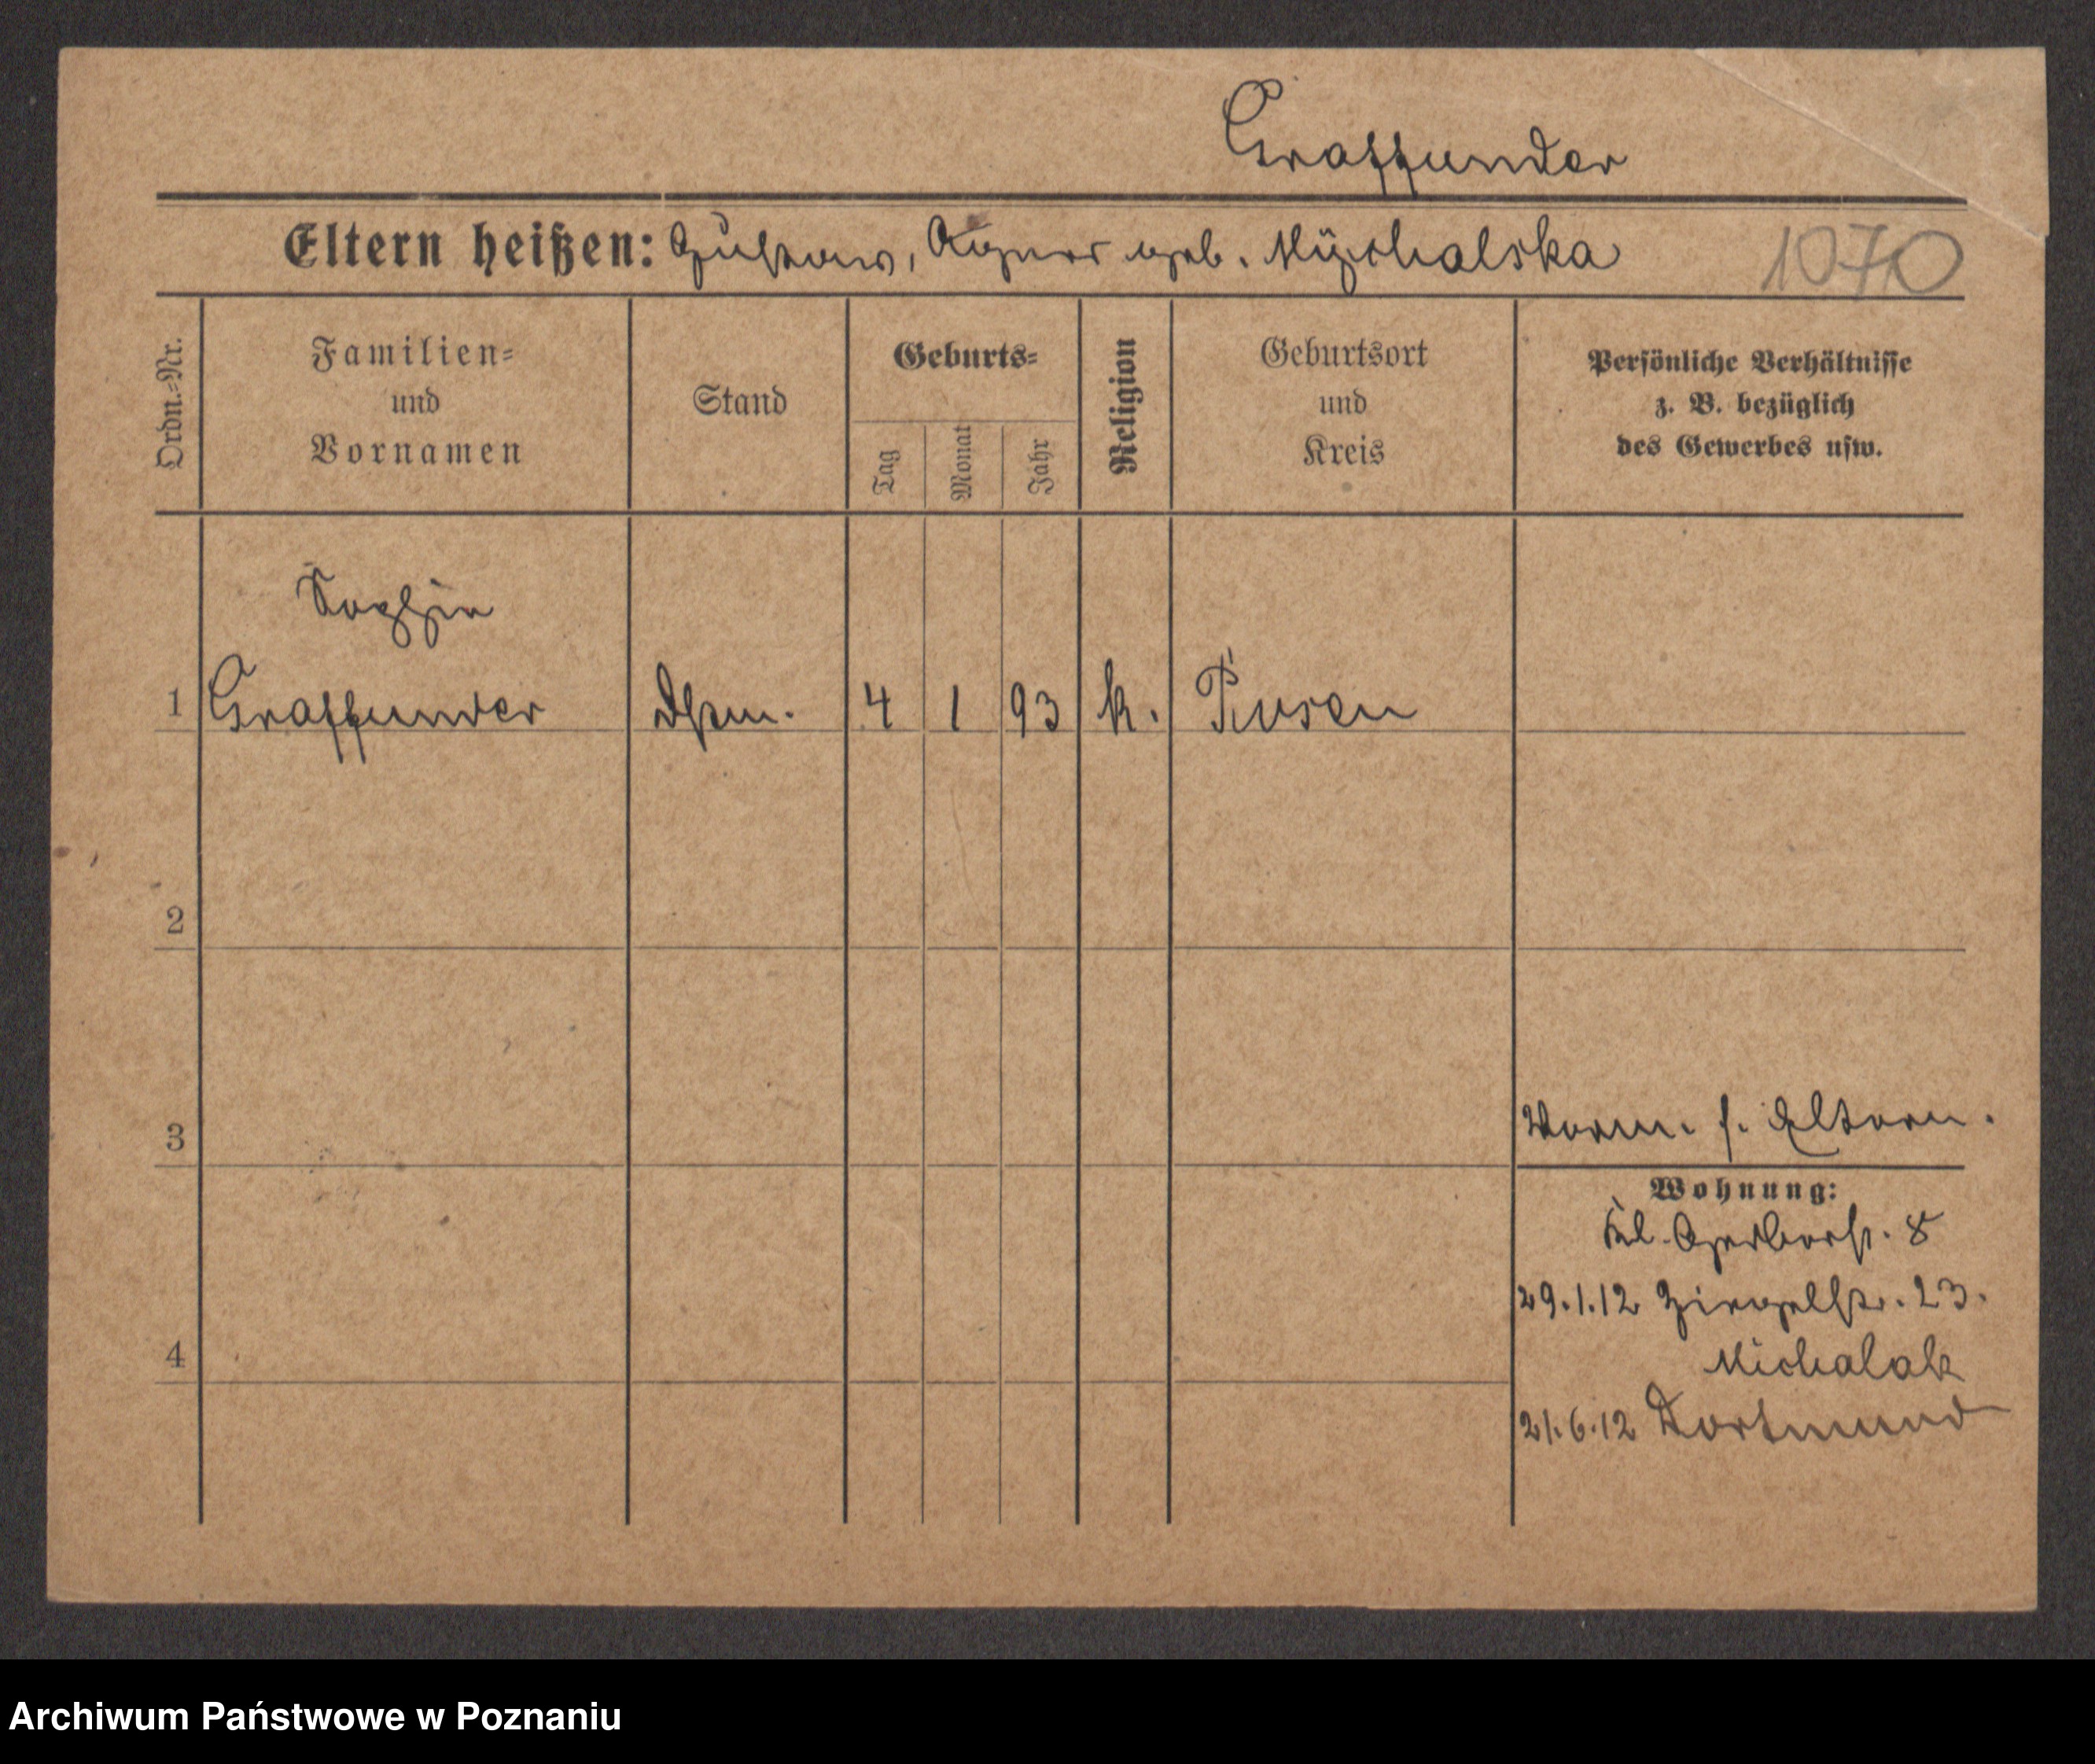 Graffunder
Eltern heißen: Gustav, Agnes geb. Mychalska 1070
Ordn.-Nr.
Familien-
und
Vornamen
Stand
Geburts-
Tag
Monat
Jahr
Religion
Geburtsort
und
Kreis
Persönliche Verhältnisse
z. B. bezüglich
des Gewerbes usw.
Sophie
1 Graffunder 4 1 93 k. Posen
2
3
Verm. s. Eltern.
Wohnung:
Kl. Gerberstr. 8
29.1.12 Ziegelstr. 23.
Michalak
4
21.6.12 Dortmund
Archiwum Państwowe w Poznaniu